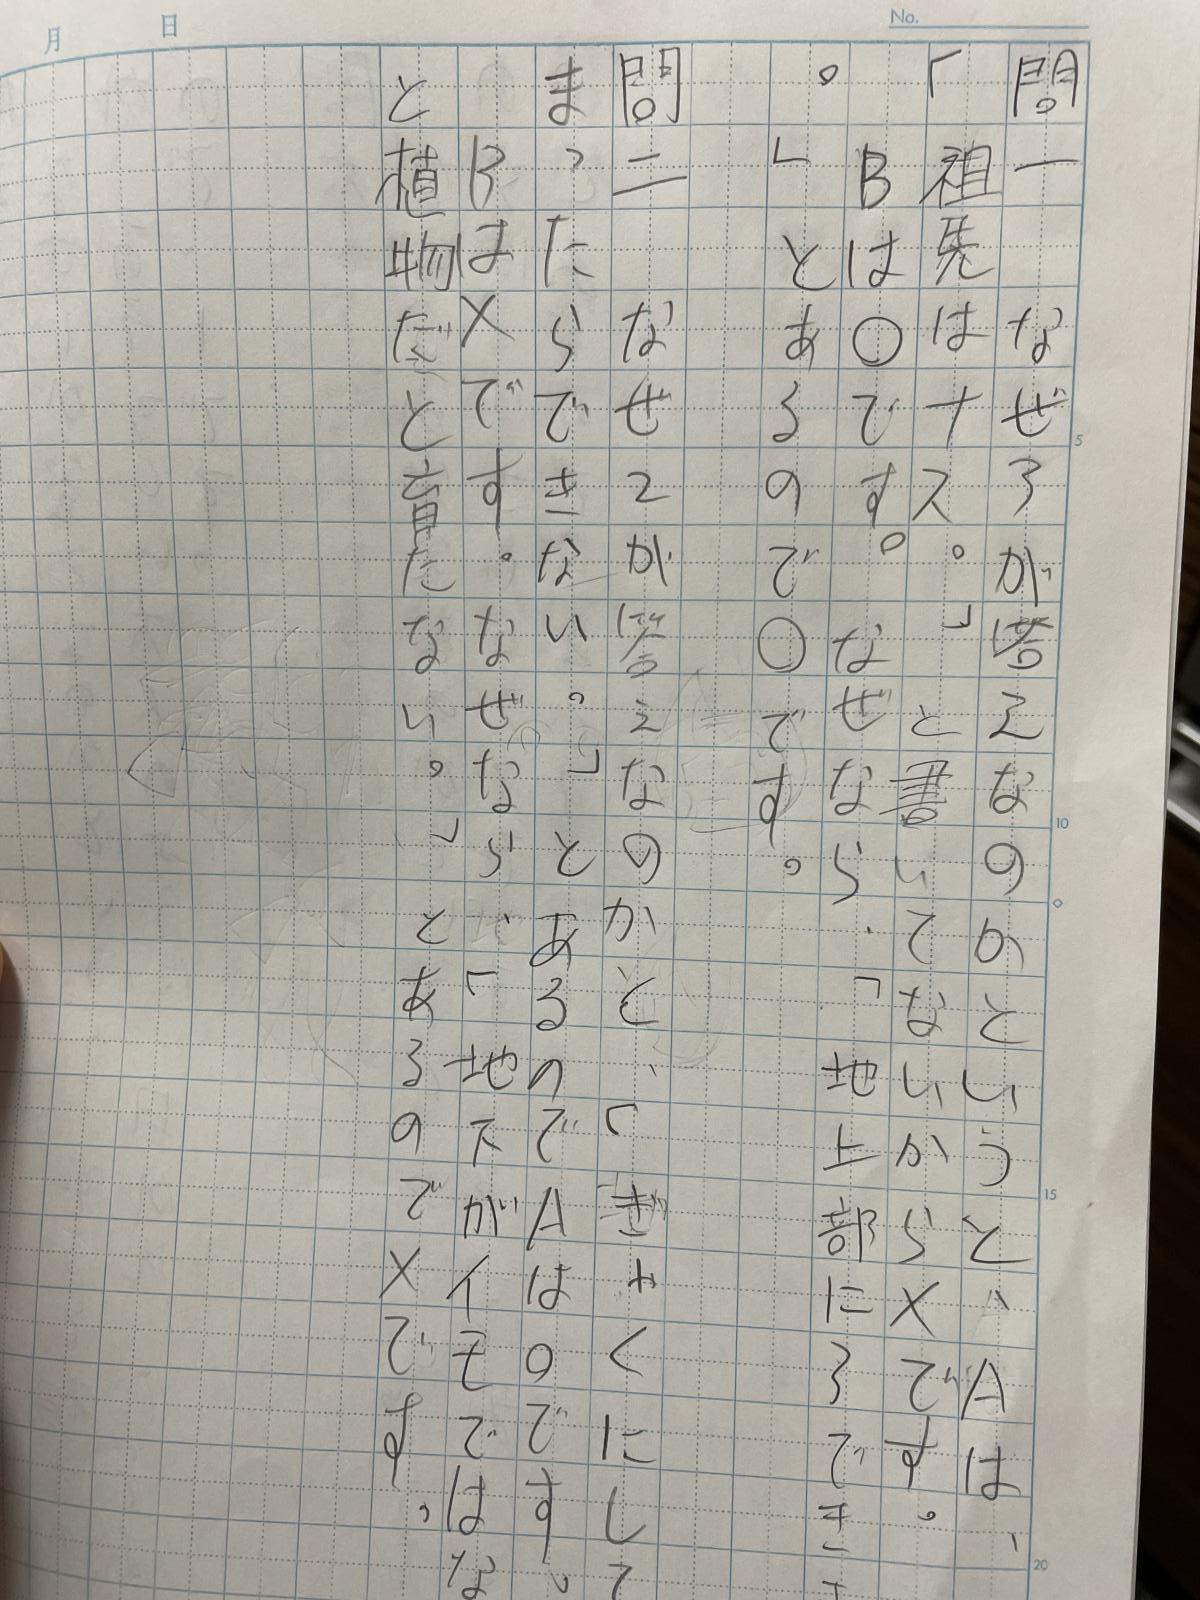 月　日
No.
問一　なぜ3が答えなのかというと、Aは、
「祖先はナス。」と書いてないからXです。
Bは○です。なぜなら、「地上部に3でき
。」とあるので○です。
問二　なぜ2が答えなのかと、「ぎゃくにして
まったらできない。」とあるのでAはのです。
BはXです。なぜなら、「地下がイモではな
と植物だと育たない。」とあるのでXです。
5
10
15
20